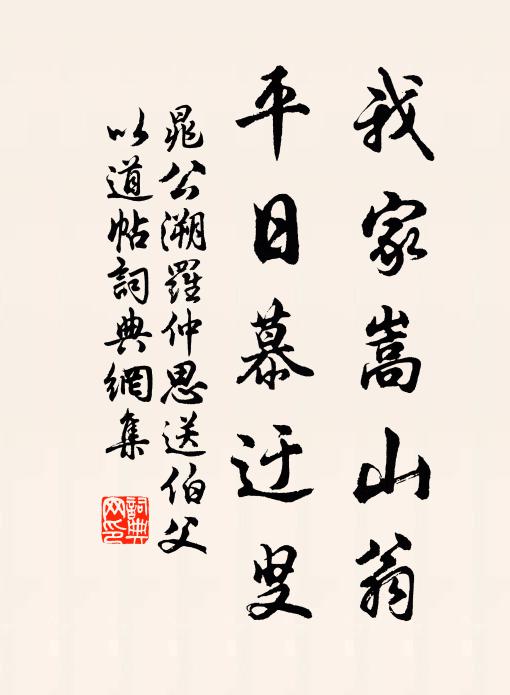 我家嵩山翁
平日慕迂叟
晁公溯羅仲思送伯父
以道帖詞典網集
詞典網印